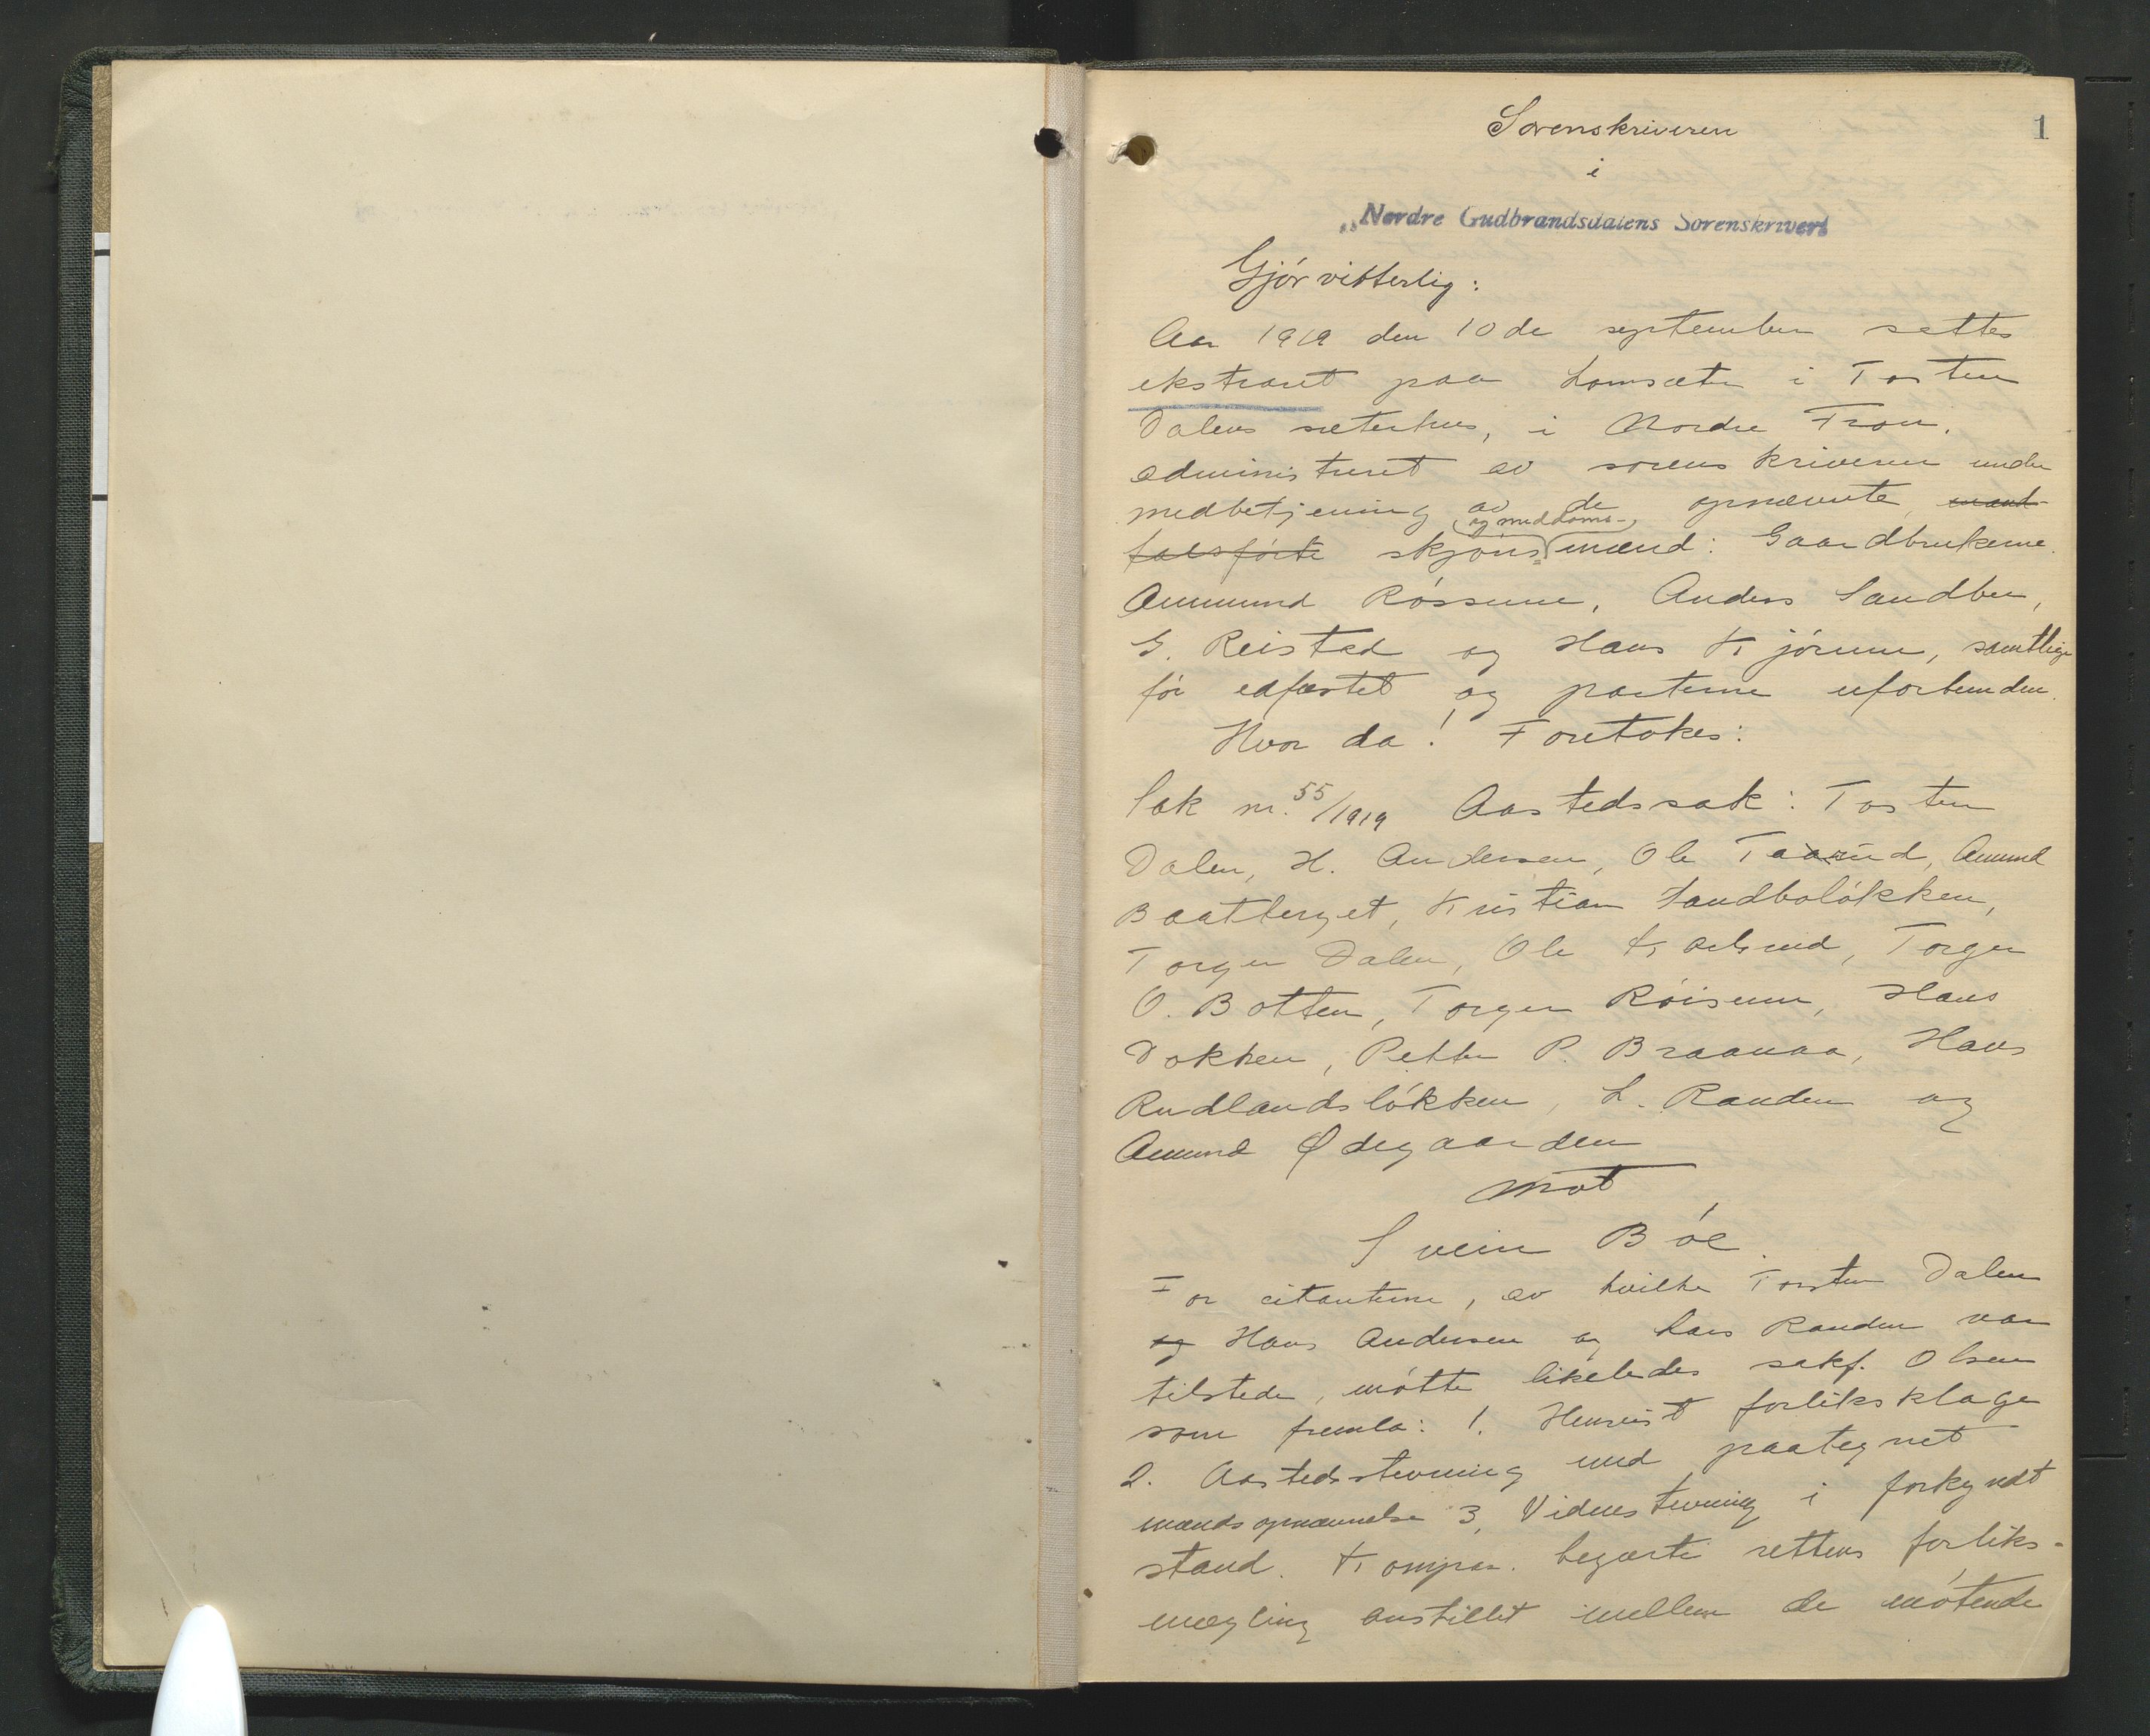 1
Sorenskriveren
i
"Nordre Gudbrandsdalens Sorenskriveri
Gjör vitterlig:
Aar 1919 den 10de september sattes
ekstraret paa Lomsæter i Tosten
Dalens sæterhus, i Nordre Fron,
administreret av sorenskriveren under
medbetjening av de opnævnte, mand-
talsförte skjöns- (og meddoms-) mænd: Gaardbrukerne
Ammund Rössum, Anders Sandbu,
G. Reistad og Hans Kjörum, samtlige
för edfæstet og parterne uforbunden.
Hvor da! Foretokes:
Sak nr. 55/1919 Aastedssak: Tosten
Dalen, H. Andersen, Ole Taarud, Amund
Baatberget, Kristian Sandbolökken,
Torger Dalen, Ole Karlsrud, Torger
O. Botten, Torger Röisum, Hans
Dokken, Petter P. Braanaa, Hans
Rudlandslökken, L. Randen og
Amund Ødegaarden
mot
Svein Böe.
For citanterne, av hvilke Torsten Dalen
og Hans Andersen og Lars Randen var
tilstede, mötte likeledes sakf. Olsen
som fremla: 1. Henvist forliksklage
2. Aastedsstevning med paategnet
mændsopnævnelse 3, Vidnestevning i forkyndt
stand. Kompar. begjærte rettens forliks-
mægling anstillet mellem de mötende